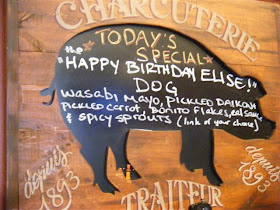 CHARCUTERIE
TODAY'S
SPECIAL
the
"HAPPY BIRTHDAY ELISE!"
DOG
WASABI MAYO, PICKLED DAIKON
PICKLED CARROT, BONITO FLAKES, eel sauce
& SPICY SPROUTS (link of your choice)
depuis
1893
depuis
1893
TRAITEUR